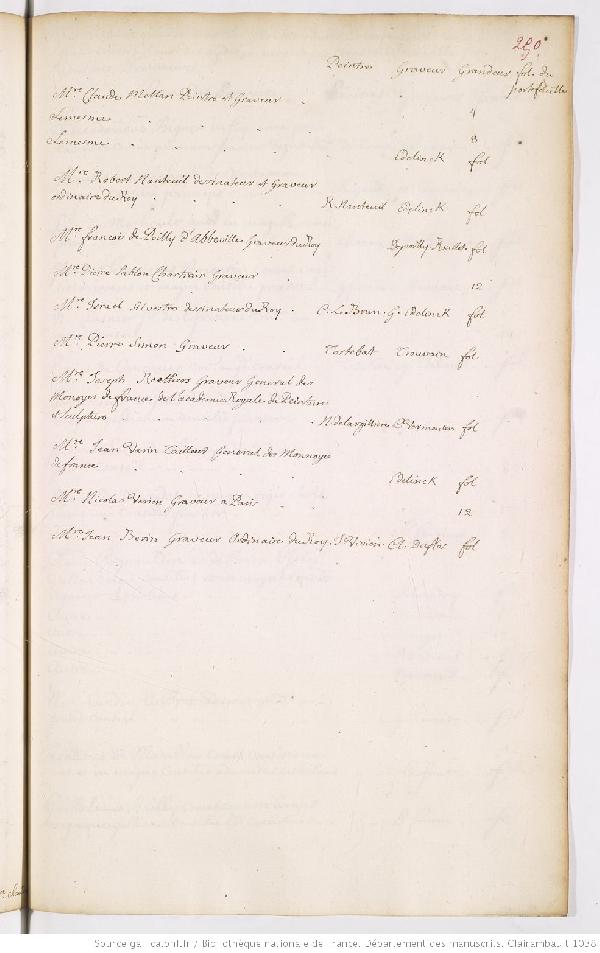 290
Peintre Graveur Grandeur fol. du
portefeuille
M.re Claude Mellan Peintre et Graveur . 4
Lemesme . . . 8
Lemesme . . . Edelinck fol
M.re Robert Nanteuil dessinateur et Graveur
ordinaire du Roy . . R. Nanteuil Edelinck fol
M.re francois de Poilly d'Abbeville Graveur du Roy fol
M.re Pierre Sablon Chartrain Graveur . 12
M.re Israel Silvestre dessinateur du Roy . C. Le Brun . G. Edelinck fol
M.re Pierre Simon Graveur . . Tortebat Trouvain fol
M.re Joseph Roettiers Graveur General des
Monoyes de france de l'academie Royale de Peinture
et sculpture . . . N. de Largilliere C. Vermeulen fol
M.re Jean Varin Tailleur General des Monnoyes
de france . . . Edelinck fol
M.re Nicolas Vivien Graveur a Paris . 12
M.re Jean Berin Graveur Ordinaire du Roy . J. Vivien Cl. Duflos fol
Source gallica.bnf.fr / Bibliothèque nationale de France. Département des manuscrits. Clairambault 1038